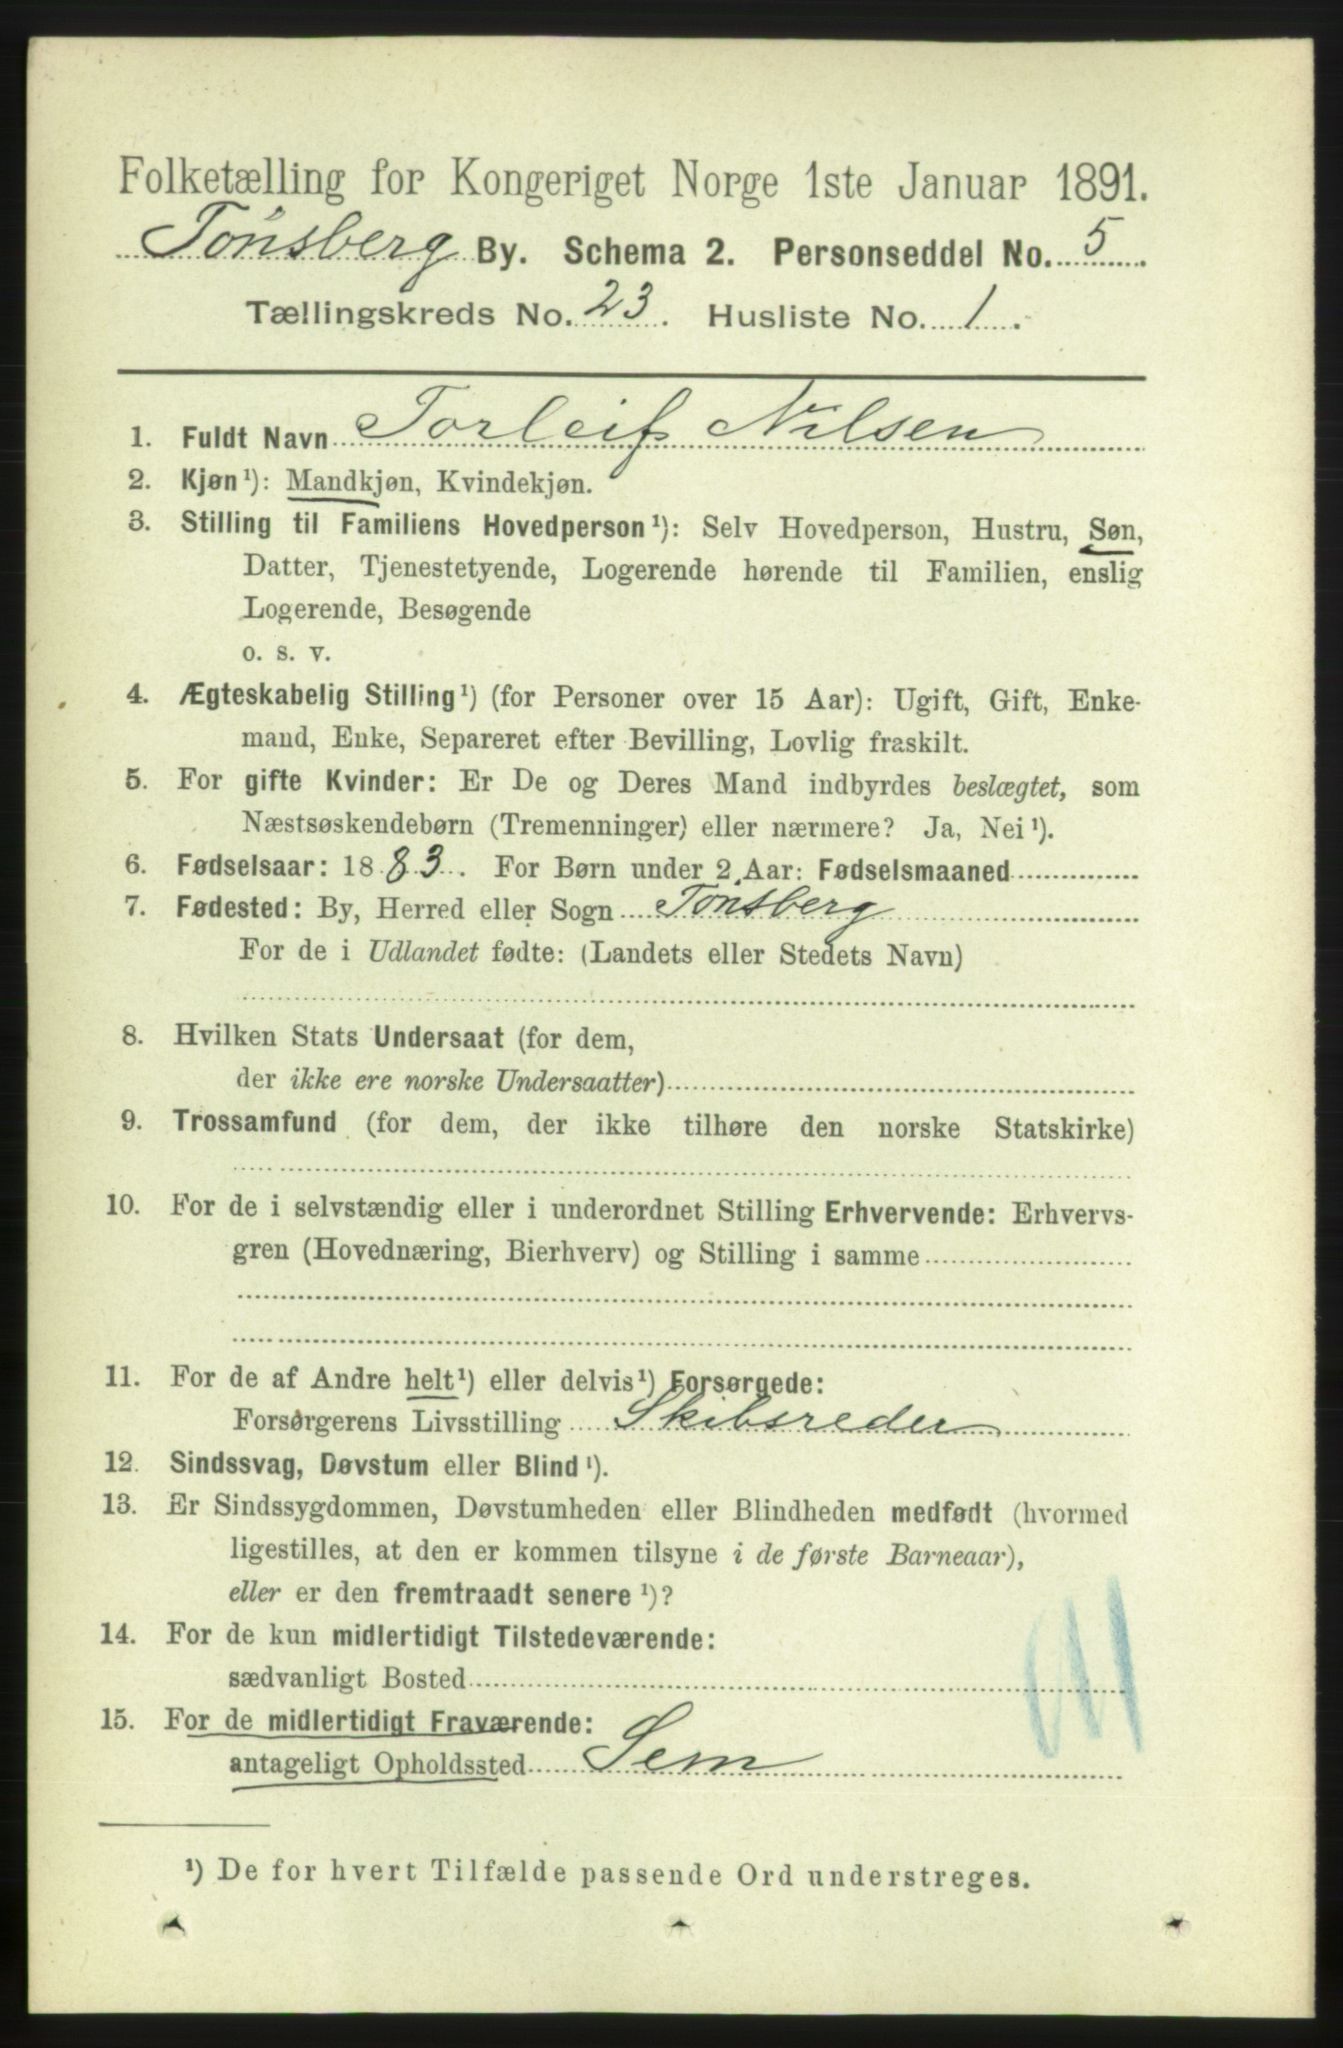 Folketælling for Kongeriget Norge 1ste Januar 1891.
Tönsberg By. Schema 2. Personseddel No. 5.
Tællingskreds No. 23. Husliste No. 1.
1. Fuldt Navn Torleif Nilsen
2. Kjøn¹): Mandkjøn, Kvindekjøn.
3. Stilling til Familiens Hovedperson¹): Selv Hovedperson, Hustru, Søn,
Datter, Tjenestetyende, Logerende hørende til Familien, enslig
Logerende, Besøgende
o. s. v.
4. Ægteskabelig Stilling¹) (for Personer over 15 Aar): Ugift, Gift, Enke-
mand, Enke, Separeret efter Bevilling, Lovlig fraskilt.
5. For gifte Kvinder: Er De og Deres Mand indbyrdes beslægtet, som
Næstsøskendebørn (Tremenninger) eller nærmere? Ja, Nei¹).
6. Fødselsaar: 1883. For Børn under 2 Aar: Fødselsmaaned
7. Fødested: By, Herred eller Sogn Tönsberg
For de i Udlandet fødte: (Landets eller Stedets Navn)
8. Hvilken Stats Undersaat (for dem,
der ikke ere norske Undersaatter)
9. Trossamfund (for dem, der ikke tilhøre den norske Statskirke)
10. For de i selvstændig eller i underordnet Stilling Erhvervende: Erhvervs-
gren (Hovednæring, Bierhverv) og Stilling i samme
11. For de af Andre helt¹) eller delvis¹) Forsørgede:
Forsørgerens Livsstilling Skibsreder
12. Sindssvag, Døvstum eller Blind¹).
13. Er Sindssygdommen, Døvstumheden eller Blindheden medfødt (hvormed
ligestilles, at den er kommen tilsyne i de første Barneaar),
eller er den fremtraadt senere¹)?
14. For de kun midlertidigt Tilstedeværende:
sædvanligt Bosted
15. For de midlertidigt Fraværende:
antageligt Opholdssted Sem
¹) De for hvert Tilfælde passende Ord understreges.